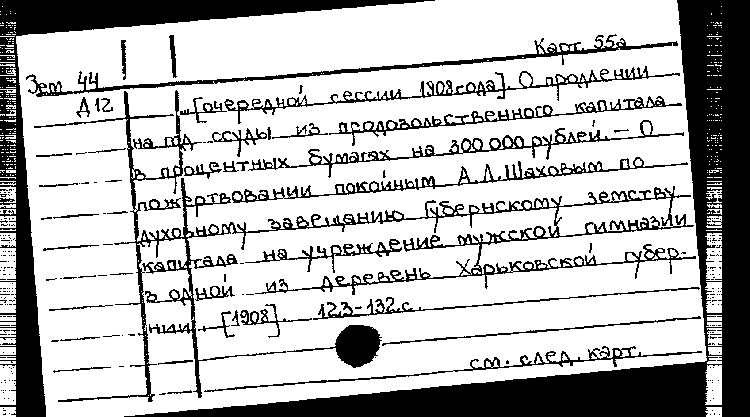 Карт. 55а
Зем 44
Д12 ...[очередной сессии 1908 года]. О продлении
на год ссуды из продовольственного капитала
в процентных бумагах на 300 000 рублей. – О
пожертвовании покойным А.Л. Шаховым по
духовному завещанию Губернскому земству
капитала на учреждение мужской гимназии
в одной из деревень Харьковской губер-
нии. [1908]. 123-132.с.
см. след. карт.